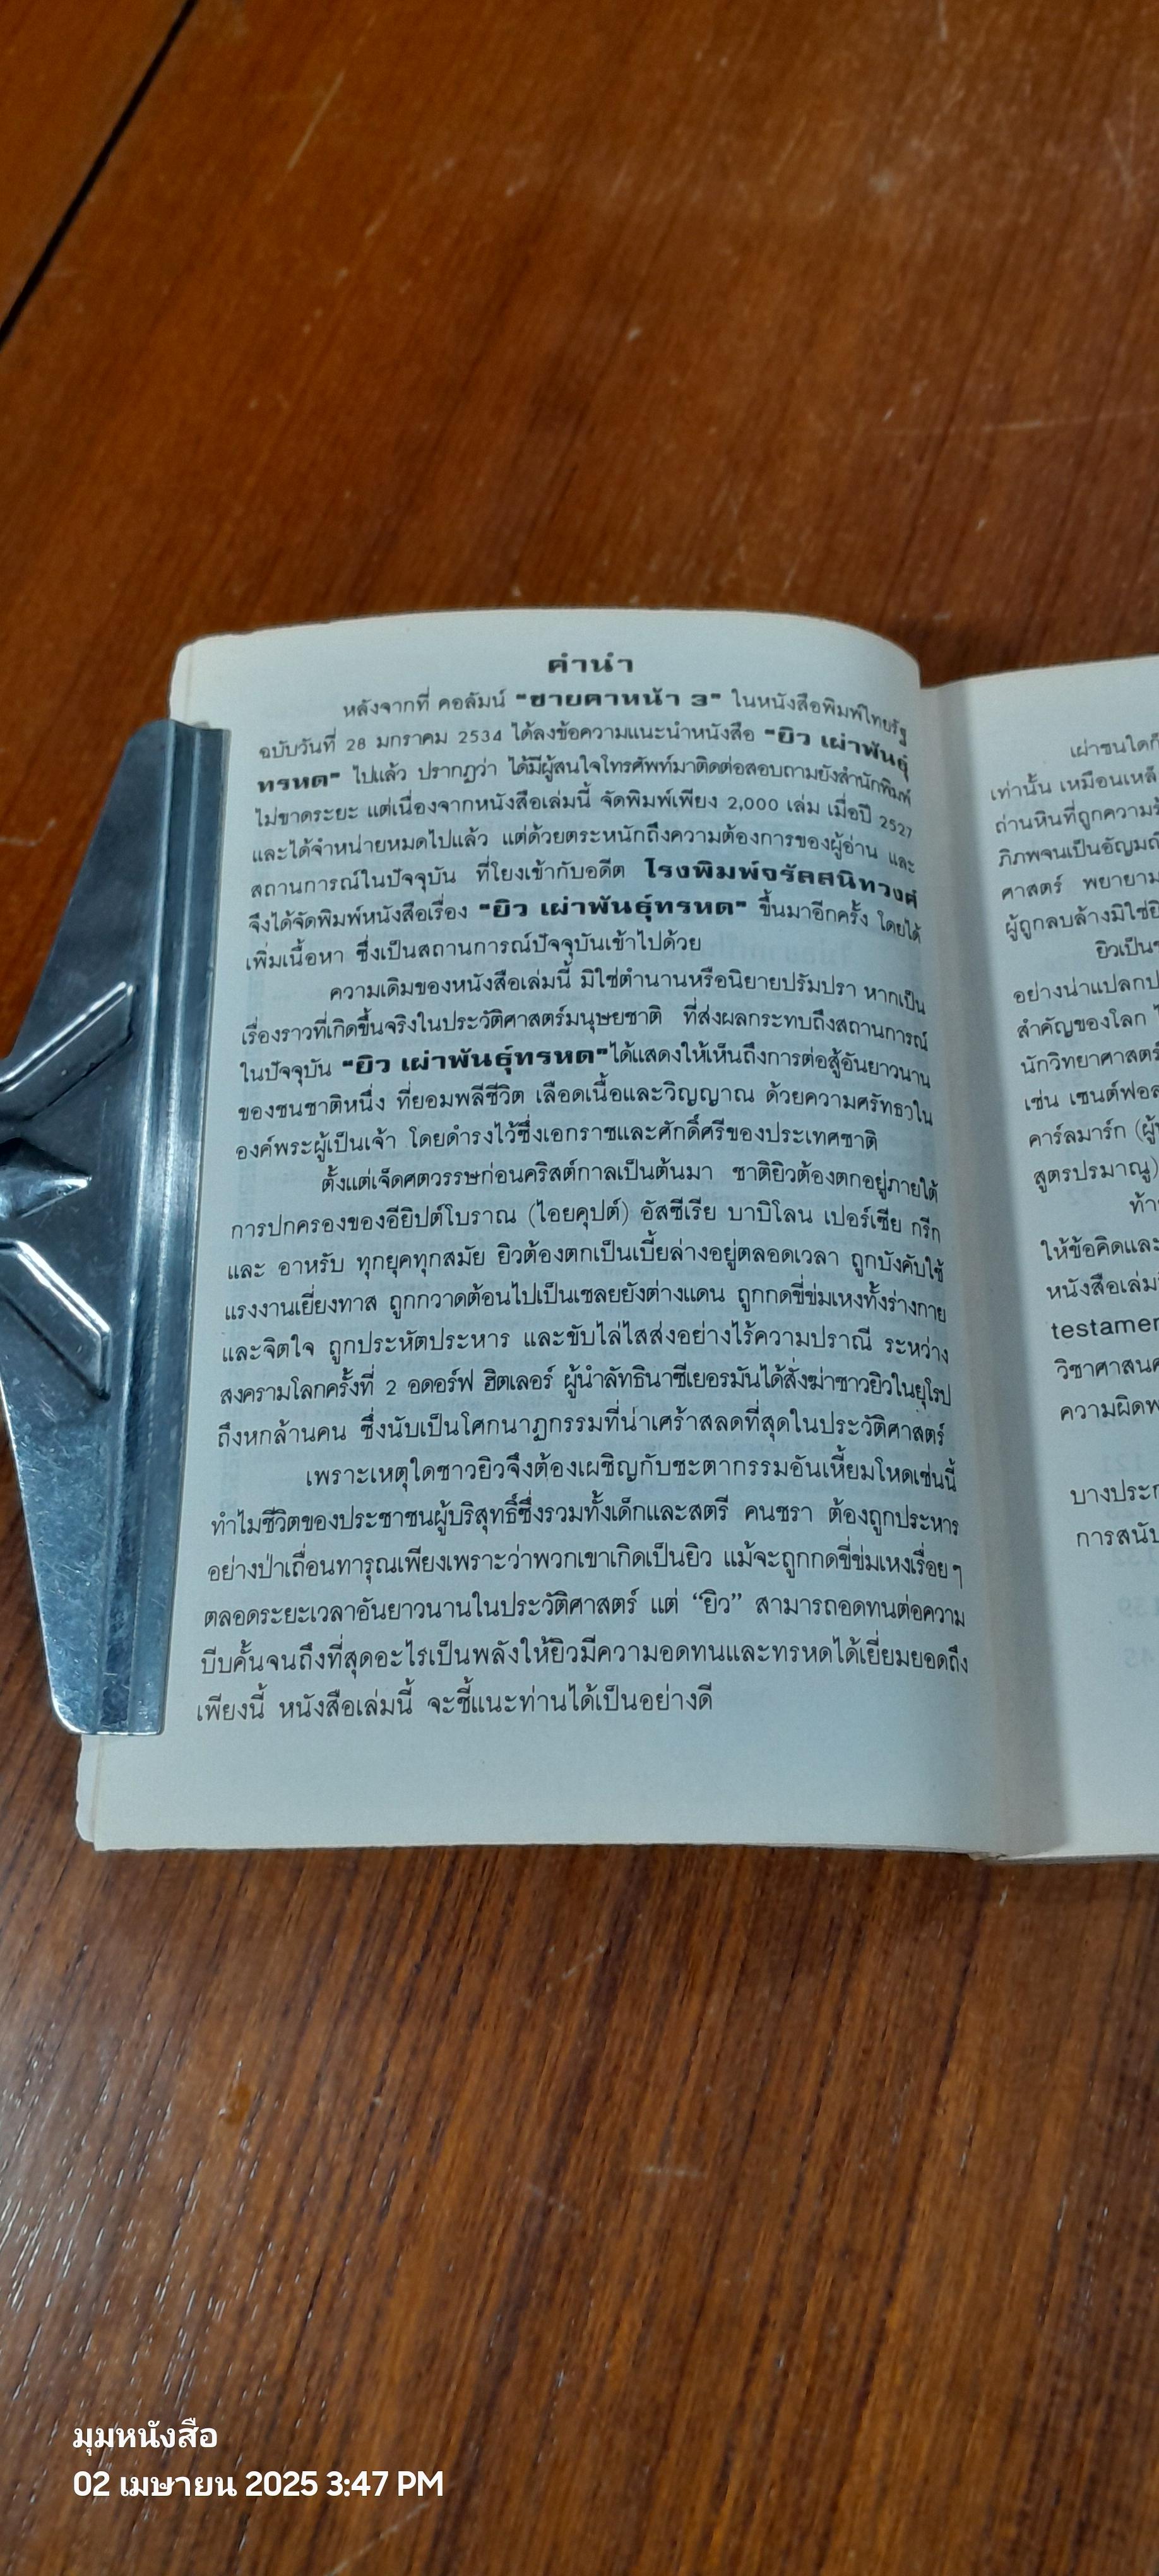 คำนำ
หลังจากที่ คอลัมน์ "ชายคาหน้า 3" ในหนังสือพิมพ์ไทยรัฐ
ฉบับวันที่ 28 มกราคม 2534 ได้ลงข้อความแนะนำหนังสือ "ยิว เผ่าพันธุ์
ทรหด" ไปแล้ว ปรากฏว่า ได้มีผู้สนใจโทรศัพท์มาติดต่อสอบถามยังสำนักพิมพ์
ไม่ขาดระยะ แต่เนื่องจากหนังสือเล่มนี้ จัดพิมพ์เพียง 2,000 เล่ม เมื่อปี 2527
และได้จำหน่ายหมดไปแล้ว แต่ด้วยตระหนักถึงความต้องการของผู้อ่าน และ
สถานการณ์ในปัจจุบัน ที่โยงเข้ากับอดีต โรงพิมพ์จรัลสนิทวงศ์
จึงได้จัดพิมพ์หนังสือเรื่อง "ยิว เผ่าพันธุ์ทรหด" ขึ้นมาอีกครั้ง โดยได้
เพิ่มเนื้อหา ซึ่งเป็นสถานการณ์ปัจจุบันเข้าไปด้วย
ความเดิมของหนังสือเล่มนี้ มิใช่ตำนานหรือนิยายปรัมปรา หากเป็น
เรื่องราวที่เกิดขึ้นจริงในประวัติศาสตร์มนุษยชาติ ที่ส่งผลกระทบถึงสถานการณ์
ในปัจจุบัน "ยิว เผ่าพันธุ์ทรหด"ได้แสดงให้เห็นถึงการต่อสู้อันยาวนาน
ของชนชาติหนึ่ง ที่ยอมพลีชีวิต เลือดเนื้อและวิญญาณ ด้วยความศรัทธาใน
องค์พระผู้เป็นเจ้า โดยดำรงไว้ซึ่งเอกราชและศักดิ์ศรีของประเทศชาติ
ตั้งแต่เจ็ดศตวรรษก่อนคริสต์กาลเป็นต้นมา ชาติยิวต้องตกอยู่ภายใต้
การปกครองของอียิปต์โบราณ (ไอยคุปต์) อัสซีเรีย บาบิโลน เปอร์เซีย กรีก
และ อาหรับ ทุกยุคทุกสมัย ยิวต้องตกเป็นเบี้ยล่างอยู่ตลอดเวลา ถูกบังคับใช้
แรงงานเยี่ยงทาส ถูกกวาดต้อนไปเป็นเชลยยังต่างแดน ถูกกดขี่ข่มเหงทั้งร่างกาย
และจิตใจ ถูกประหัตประหาร และขับไล่ไสส่งอย่างไร้ความปราณี ระหว่าง
สงครามโลกครั้งที่ 2 อดอร์ฟ ฮิตเลอร์ ผู้นำลัทธินาซีเยอรมันได้สั่งฆ่าชาวยิวในยุโรป
ถึงหกล้านคน ซึ่งนับเป็นโศกนาฏกรรมที่น่าเศร้าสลดที่สุดในประวัติศาสตร์
เพราะเหตุใดชาวยิวจึงต้องเผชิญกับชะตากรรมอันเหี้ยมโหดเช่นนี้
ทำไมชีวิตของประชาชนผู้บริสุทธิ์ซึ่งรวมทั้งเด็กและสตรี คนชรา ต้องถูกประหาร
อย่างป่าเถื่อนทารุณเพียงเพราะว่าพวกเขาเกิดเป็นยิว แม้จะถูกกดขี่ข่มเหงเรื่อยๆ
ตลอดระยะเวลาอันยาวนานในประวัติศาสตร์ แต่ “ยิว” สามารถอดทนต่อความ
บีบคั้นจนถึงที่สุดอะไรเป็นพลังให้ยิวมีความอดทนและทรหดได้เยี่ยมยอดถึง
เพียงนี้ หนังสือเล่มนี้ จะชี้แนะท่านได้เป็นอย่างดี
เผ่าชนใดก็
เท่านั้น เหมือนเหล็
ถ่านหินที่ถูกความร้
ภิภพจนเป็นอัญมณี
ศาสตร์ พยายาม
ผู้ถูกลบล้างมิใช่ยิ
ยิวเป็นช
อย่างน่าแปลกป
สำคัญของโลก
นักวิทยาศาสตร์
เช่น เซนต์ฟอล
คาร์ลมาร์ก (ผู้
สูตรปรมาณู)
ท้าย
ให้ข้อคิดและ
หนังสือเล่ม
testamen
วิชาศาสน
ความผิดพ
บางประก
การสนับ
มุมหนังสือ
02 เมษายน 2025 3:47 PM